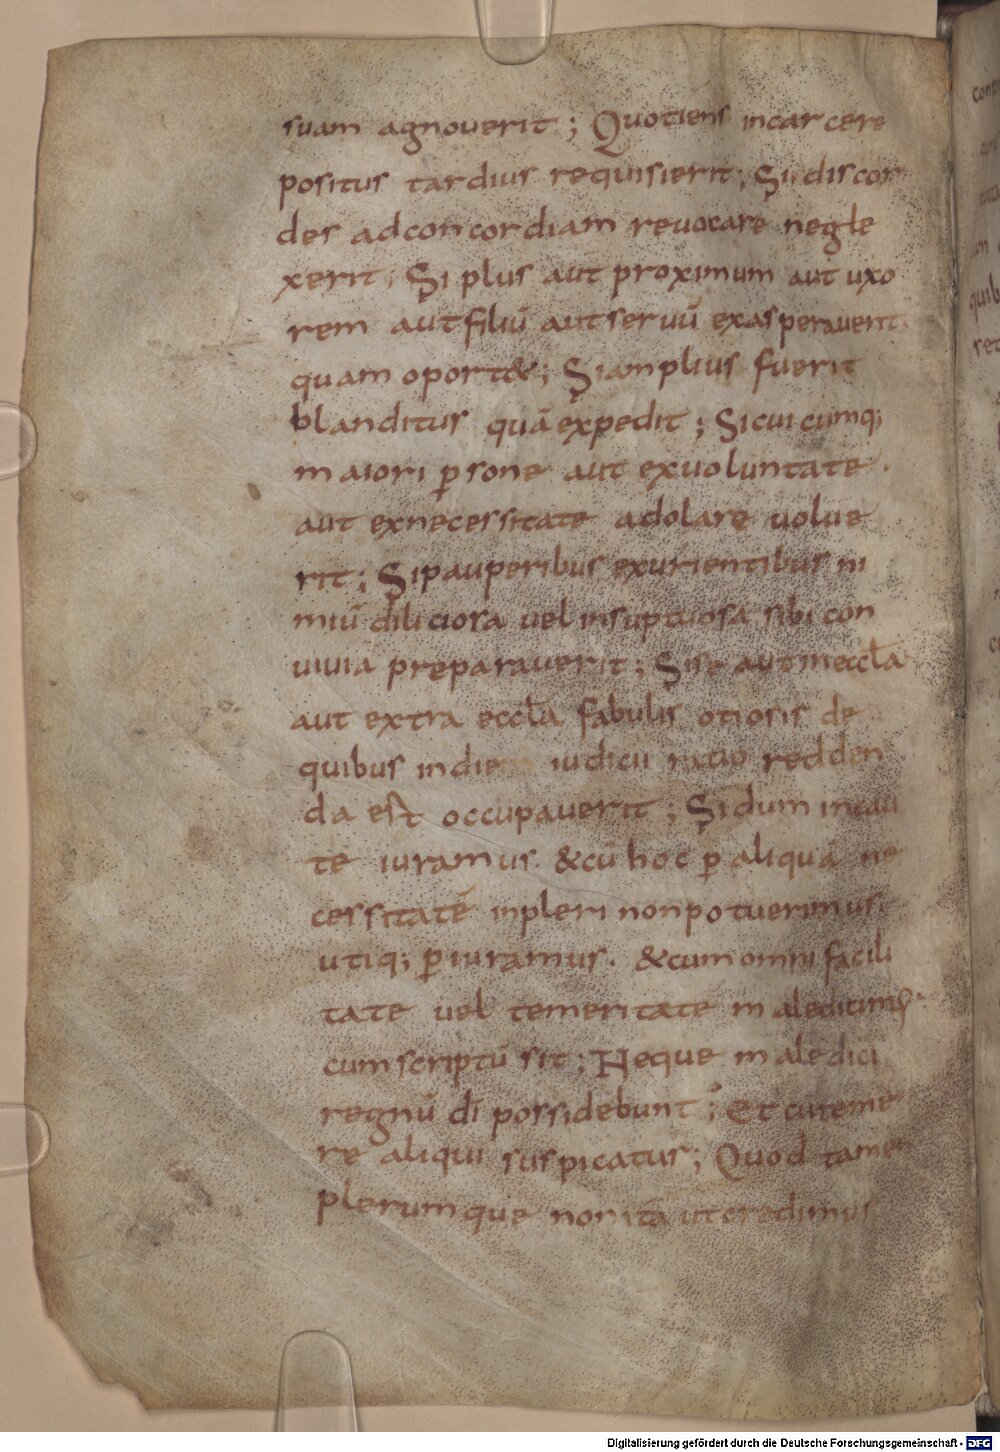 suam agnouerit; Quotiens incarcere
positus tardius requisierit; Si discor
des adconcordiam reuocare negle
xerit; Si plus aut proximum aut uxo
rem aut filiū aut seruū exasperauerit
quam oport&; Si amplius fuerit
blanditus quā expedit; Si cuicumq;
maiori ꝑsone aut exuoluntate.
aut exnecessitate adolare uolue
rit; Si pauperibus exurientibus ni
miū diliciosa uel insuptuosa sibi con
uiuia preparauerit; Si se aut ineccl̄a
aut extra eccl̄a fabulis otiosis de
quibus indiem iudicii racio redden
da est occupauerit; Si dum incau
te iuramus. &cū hoc ꝑ aliquā ne
cessitatē inpleri nonpotuerimus
utiq; ꝑiuramus. &cum omni facili
tate uel temeritate maledicimus
cum scriptū sit; Neque maledici
regnū dī possidebunt; Et cū teme
re aliqui suspicatur; Quod tamen
plerumque non ita ut credimus
cone
quib
ret
Digitalisierung gefördert durch die Deutsche Forschungsgemeinschaft - DFG